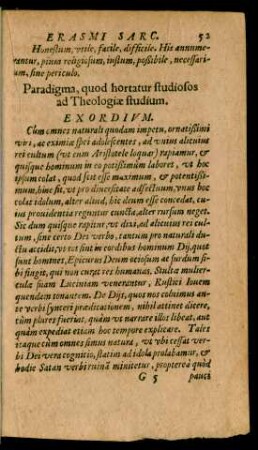 ERASMI SARC. 52
Honestum, vtile, facile, difficile. His annume-
rantur, pium religiosum, iustum, possibile, necessari-
um, sine periculo.
Paradigma, quod hortatur studiosos
ad Theologiæ studium.
EXORDIVM.
Cum omnes naturali quodam impetu, ornatissimi
viri, ac eximiæ spei adolescentes, ad vnius alicuius
rei cultum (vt cum Aristotele loquar) rapiamur, &
quisque hominum in eo potissimum laboret, vt hoc
ipsum colat, quod scit esse maximum, & potentissi-
mum, hinc fit, vt pro diuersitate adfectuum, vnus hoc
velut idolum, alter aliud, hic deum esse concedat, cu-
ius prouidentia reguntur cuncta, alter rursum neget.
Sic dum quisque rapitur, vt dixi, ad alicuius rei cul-
tum, sine certo Dei verbo, tantum pro naturali du-
ctu accidit, vt tot sint in cordibus hominum Dij, quot
sunt homines, Epicurus Deum otiosum ac surdum si-
bi fingit, qui non curat res humanas. Stulta mulier-
cula suam Lucinam venerantur, Rustici Iouem
quendem tonantem. De Dijs, quos nos coluimus an-
te verbi synceri prædicationem, nihil attinet dicere,
cùm plures fuerint, quàm vt narrare illot libeat, aut
quàm expediat etiam hoc tempore explicare. Tales
itaque cum omnes simus natura, vt vbi cessat ver-
bi Dei vera cognitio, statim ad idola prolabamur, &
hodie Satan verbi ruinā minitetur, propterea quòd
G 5 pauci